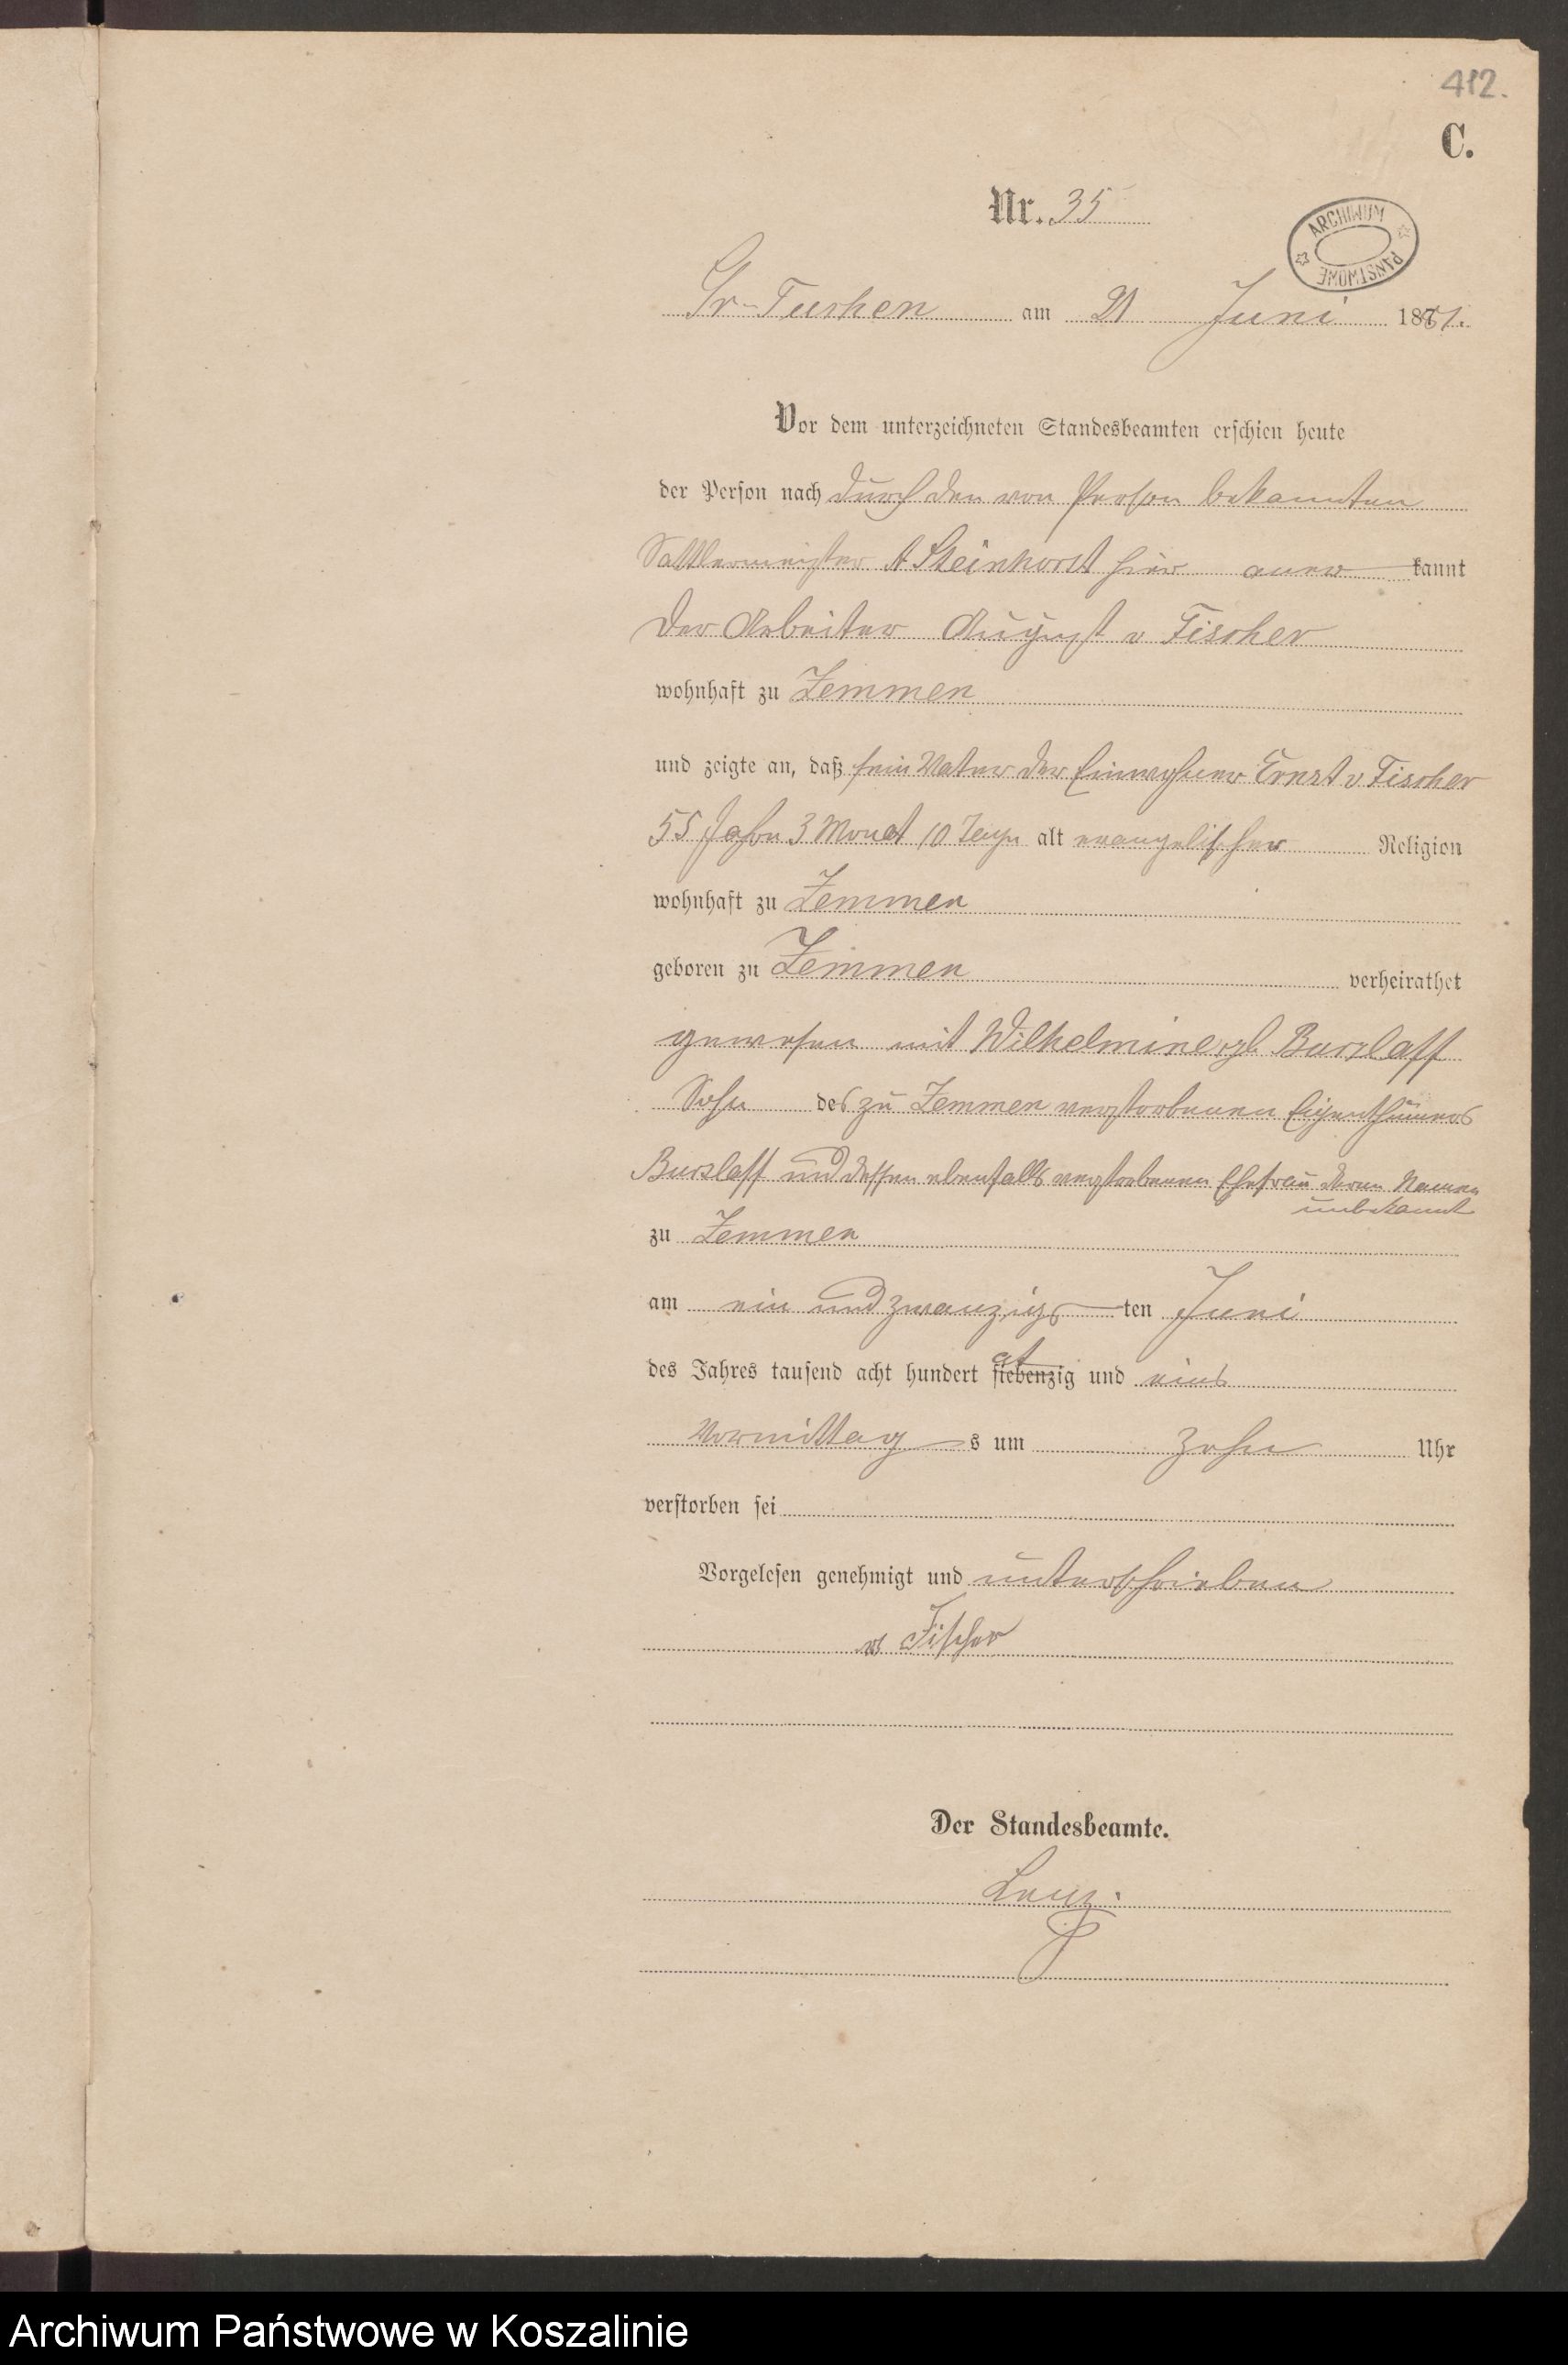 412.
C.
Nr. 35
ARCHIWUM PAŃSTWOWE
Gr-Tuchen am 21 Juni 1881.
Vor dem unterzeichneten Standesbeamten erschien heute
der Person nach durch den von Person bekannten
Sattlermeister A Steinhorst hier aner kannt
der Arbeiter August v Fischer
wohnhaft zu Zemmen
und zeigte an, daß sein Vater der Einwohner Ernst v Fischer
55 Jahr 3 Monat 10 Tage alt evangelischer Religion
wohnhaft zu Zemmen
geboren zu Zemmen verheirathet
gewesen mit Wilhelmine Burzlaff
Sohn des zu Zemmen verstorbenen Eigenthümers
Burzlaff und dessen ebenfalls verstorbenen Ehefrau deren Namen
unbekannt
zu Zemmen
am ein und zwanzigs ten Juni
des Jahres tausend acht hundert siebenzig und eins
at
Vormittag s um zehn Uhr
verstorben sei
Vorgelesen genehmigt und unterschrieben
v Fischer
Der Standesbeamte.
Archiwum Państwowe w Koszalinie